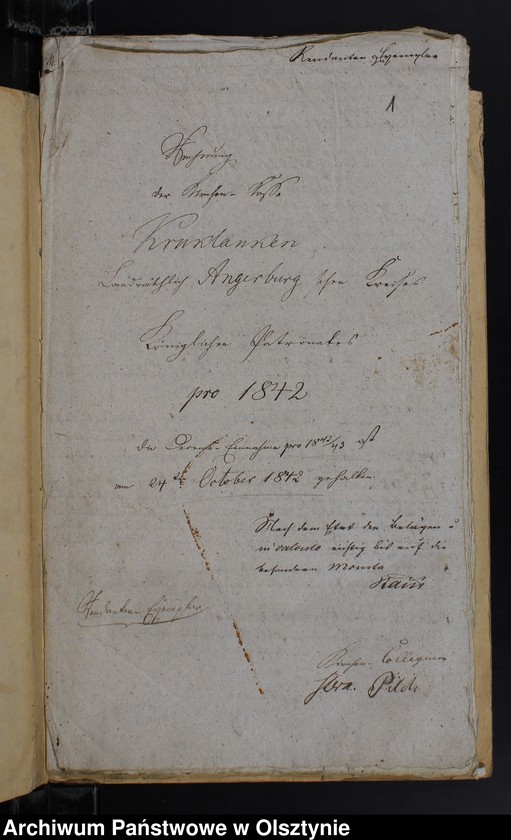 Rendanten Exemplar
1
Rechnung
der Kirchen-Kasse
Kruklanken
Landräthlich Angerburgschen Kreises
Königlichen Patronates
pro 1842
die Einnahme pro 1842/43 ist
am 24ten October 1842 gehalten.
Nach dem Etat den Belägen u
in calculo richtig bis auf die
besondern Monita
Rendanten Exemplar
Kirchen-Collegium
Pilch
Archiwum Państwowe w Olsztynie